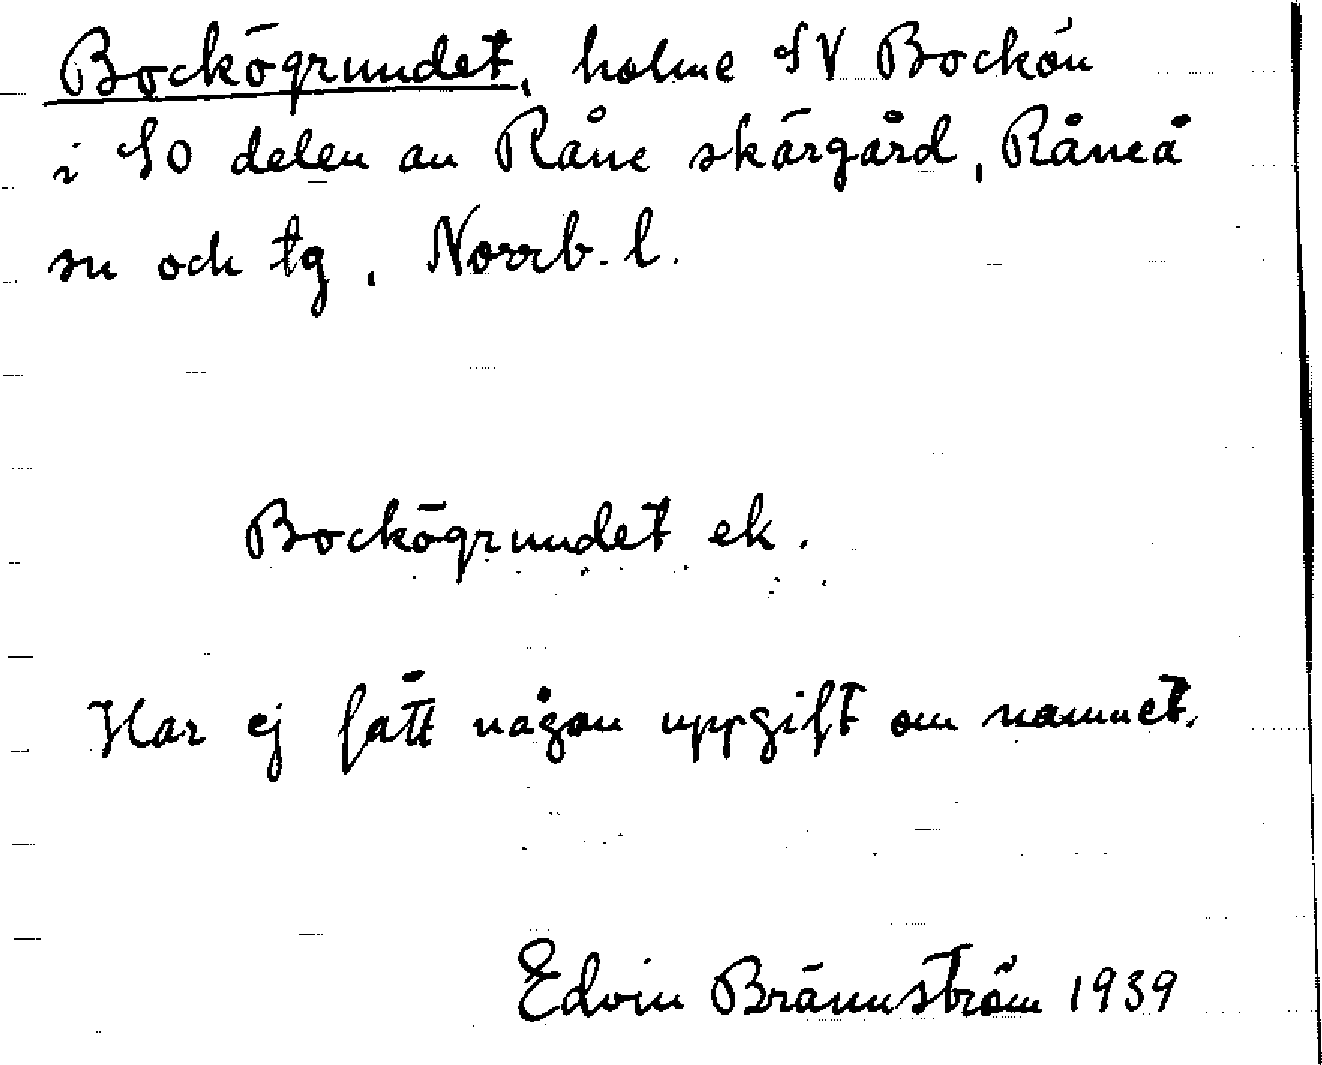 Bockögrundet, holme SV Bockön
i SO delen av Råne skärgård, Råneå
sn och tg, Norrb. l.
Bockögrundet ek.
Har ej fått någon uppgift om namnet.
Edvin Brännström 1939